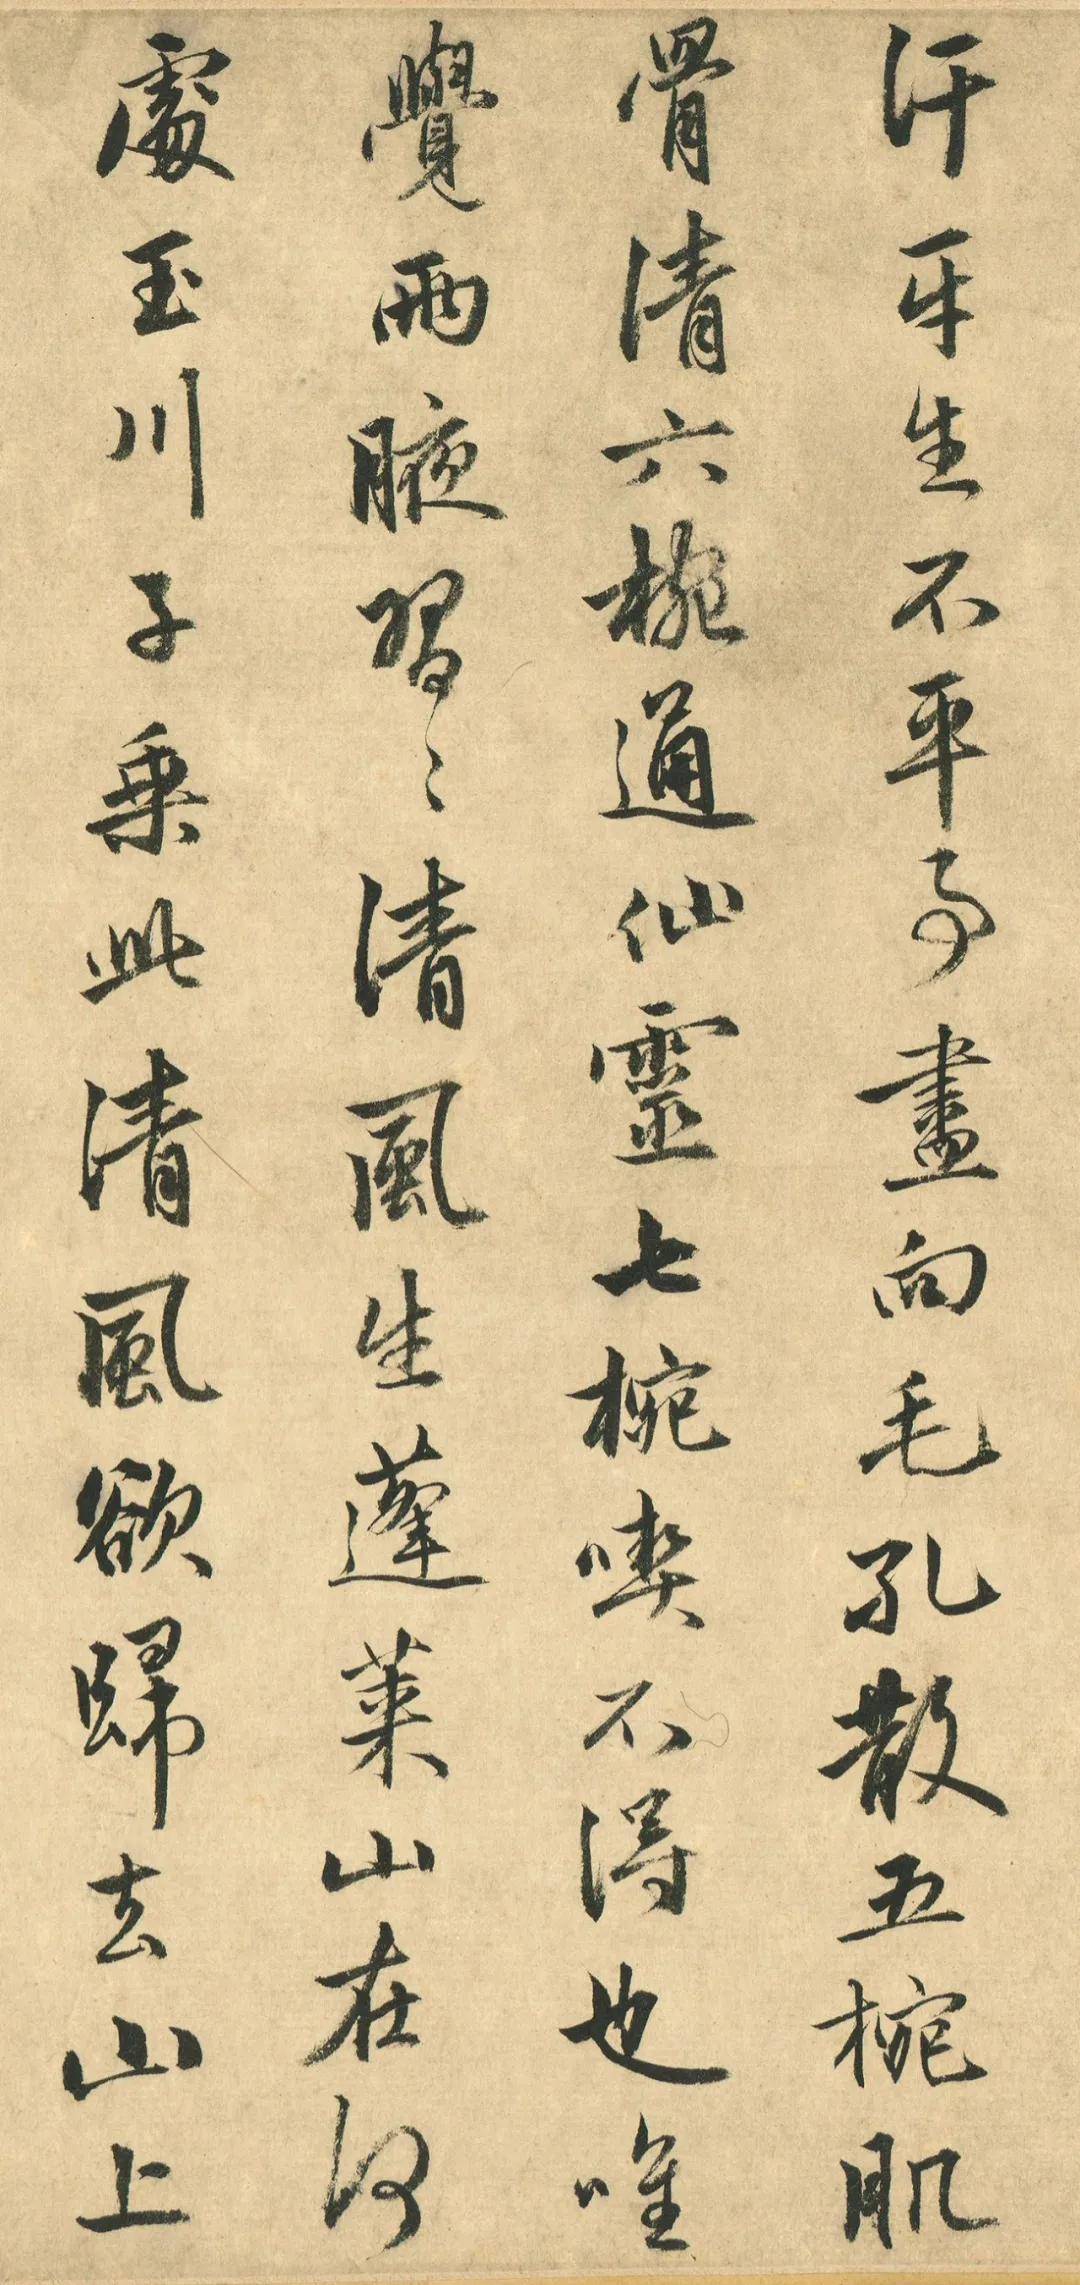 汗平生不平事盡向毛孔散五椀肌
骨清六椀通仙靈七椀喫不得也唯
覺兩腋習〻清風生蓬萊山在何
處玉川子乘此清風欲歸去山上